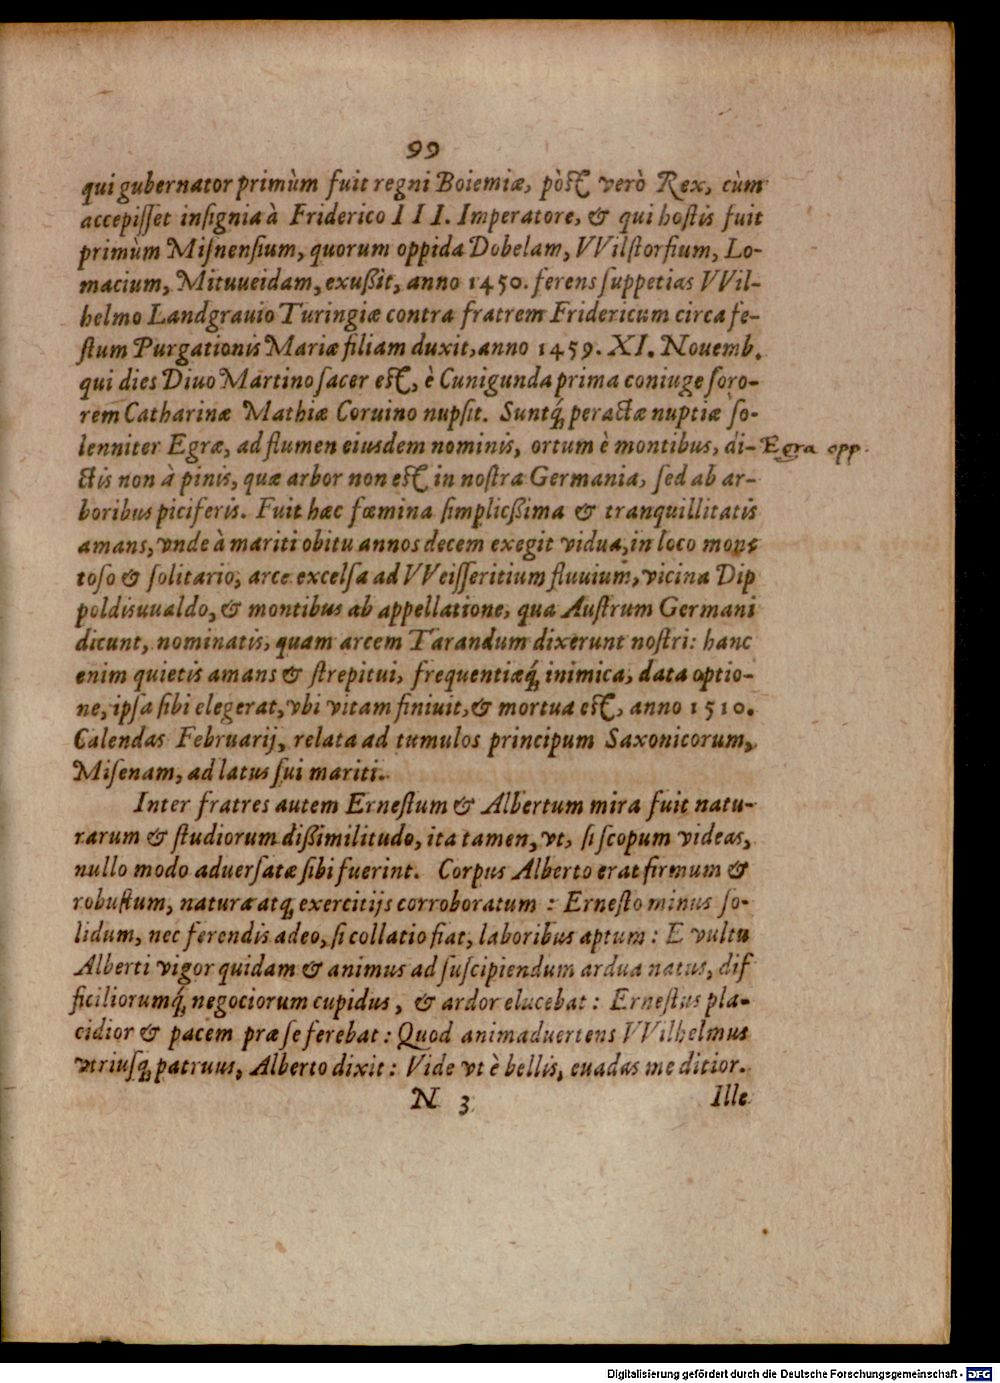 99
qui gubernator primùm fuit regni Boiemiæ, pòſt verò Rex, cùm
accepiſſet inſignia à Friderico III. Imperatore, & qui hoſtis fuit
primùm Miſnenſium, quorum oppida Dobelam, VVilſtorfium, Lo-
macium, Mituueidam, exußit, anno 1450. ferens ſuppetias VVil-
helmo Landgrauio Turingiæ contra fratrem Fridericum circa fe-
ſtum Purgationis Mariæ filiam duxit, anno 1459. XI. Nouemb.
qui dies Diuo Martino ſacer eſt, è Cunigunda prima coniuge ſoro-
rem Catharinæ Mathiæ Coruino nupſit. Suntq́; peractæ nuptiæ ſo-
lenniter Egræ, ad flumen eiusdem nominis, ortum è montibus, di-
Egra opp.
ctis non à pinis, quæ arbor non eſt in noſtra Germania, ſed ab ar-
boribus piciferis. Fuit hæc fœmina ſimplicßima & tranquillitatis
amans, vnde à mariti obitu annos decem exegit vidua, in loco mon-
toſo & ſolitario, arce excelſa ad VVeiſſeritium fluuium, vicina Dip
poldisuualdo, & montibus ab appellatione, qua Auſtrum Germani
dicunt, nominatis, quam arcem Tarandum dixerunt noſtri: hanc
enim quietis amans & ſtrepitui, frequentiæq́; inimica, data optio-
ne, ipſa ſibi elegerat, vbi vitam finiuit, & mortua eſt, anno 1510.
Calendas Februarij, relata ad tumulos principum Saxonicorum,
Miſenam, ad latus ſui mariti.
Inter fratres autem Erneſtum & Albertum mira fuit natu-
rarum & ſtudiorum dißimilitudo, ita tamen, vt, ſi ſcopum videas,
nullo modo aduerſatæ ſibi fuerint. Corpus Alberto erat firmum &
robuſtum, naturæ atq; exercitijs corroboratum : Erneſto minus ſo-
lidum, nec ferendis adeo, ſi collatio fiat, laboribus aptum : E vultu
Alberti vigor quidam & animus ad ſuſcipiendum ardua natus, dif
ficiliorumq́; negociorum cupidus, & ardor elucebat : Erneſtus pla-
cidior & pacem præ ſe ferebat : Quod animaduertens VVilhelmus
vtriuſq; patruus, Alberto dixit : Vide vt è bellis, euadas me ditior.
N 3
Ille
Digitalisierung gefördert durch die Deutsche Forschungsgemeinschaft - DFG